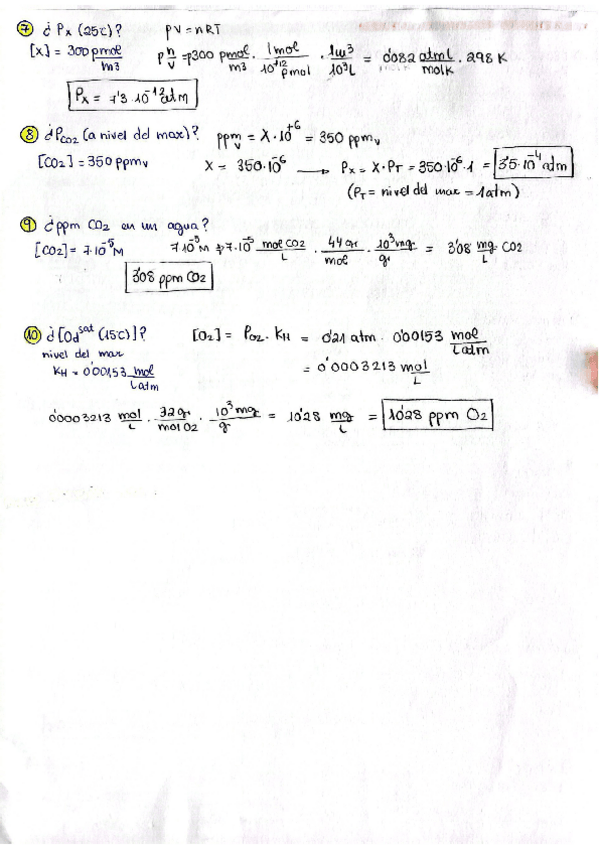 7 ¿Px (25ºC)? PV = nRT
[X] = 300 pmol/m3 P n/V = p300 pmol/m3 · 1mol/10^+12 pmol · 1m^3/10^3L = 0'082 atml/molK · 298 K
Px = 7'3·10^-12 atm
8 ¿PCO2 (a nivel del mar)? ppmv = X·10^+6 = 350 ppmv
[CO2] = 350 ppmv X = 350·10^-6 → Px = X·PT = 350·10^-6·1 = 3'5·10^-4 atm
(PT = nivel del mar = 1atm)
9 ¿ppm CO2 en un agua?
[CO2] = 7·10^-5 M 7·10^-5 M → 7·10^-5 mol CO2/L · 44 gr/mol · 10^3 mgr/gr = 3'08 mg/L CO2
3'08 ppm CO2
10 ¿[O2]sat (15ºC)? [O2] = PO2 · KH = 0'21 atm · 0'00153 mol/Latm
nivel del mar
KH = 0'00153 mol/Latm = 0'0003213 mol/L
0'0003213 mol/L · 32gr/mol O2 · 10^3 mgr/gr = 10'28 mg/L = 10'28 ppm O2